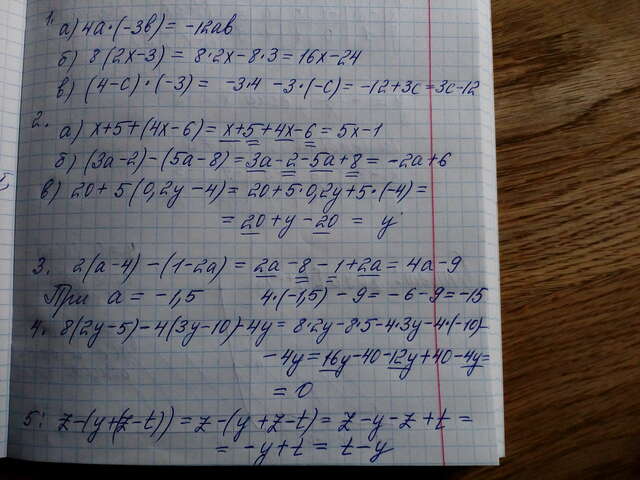 1. а) 4а·(-3в) = -12ав
б) 8(2x-3) = 8·2x-8·3 = 16x-24
в) (4-с)·(-3) = -3·4 -3·(-с) = -12+3с = 3с-12
2. а) x+5+(4x-6) = x+5+4x-6 = 5x-1
б) (3а-2)-(5а-8) = 3а-2-5а+8 = -2а+6
в) 20+5(0,2y-4) = 20+5·0,2y+5·(-4) =
= 20+y-20 = y
3. 2(а-4)-(1-2а) = 2а-8-1+2а = 4а-9
При а = -1,5 4·(-1,5)-9 = -6-9 = -15
4. 8(2y-5)-4(3y-10)-4y = 8·2y-8·5-4·3y-4·(-10)-
-4y = 16y-40-12y+40-4y =
= 0
5: z-(y+(z-t)) = z-(y+z-t) = z-y-z+t =
= -y+t = t-y